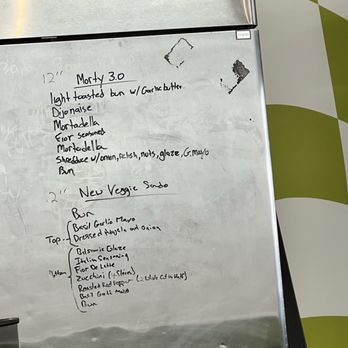 12" Morty 3.0
light toasted bun w/ Garlic butter
Dijonaise
Mortadella
Fior seasoned
Mortadella
Shredduce w/onion, relish, nuts, glaze, G.mayo
Bun
12" New Veggie Sando
Bun
Basil Garlic Mayo
Top
Dressed Arugula and onion
Balsamic Glaze
Italian Seasoning
Fior De Latte
Zucchini
Roasted Red Pepper
Basil Garlic mayo
Bun